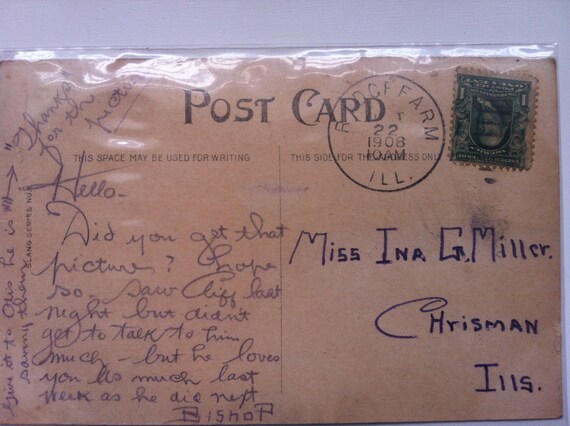 "Thanks"
for the
POST CARD
RIDGEFARM
22
1908
10AM
ILL.
1
THIS SPACE MAY BE USED FOR WRITING
THIS SIDE FOR THE ADDRESS ONLY
Hello-
Did you get that
picture? I hope
so. Saw Cliff last
night but didn't
get to talk to him
much - but he loves
you as much last
week as he did next
BISHOP
Give it to Otis he is
SLANG SERIES NO.
Miss Ina G. Miller.
Chrisman
Ills.